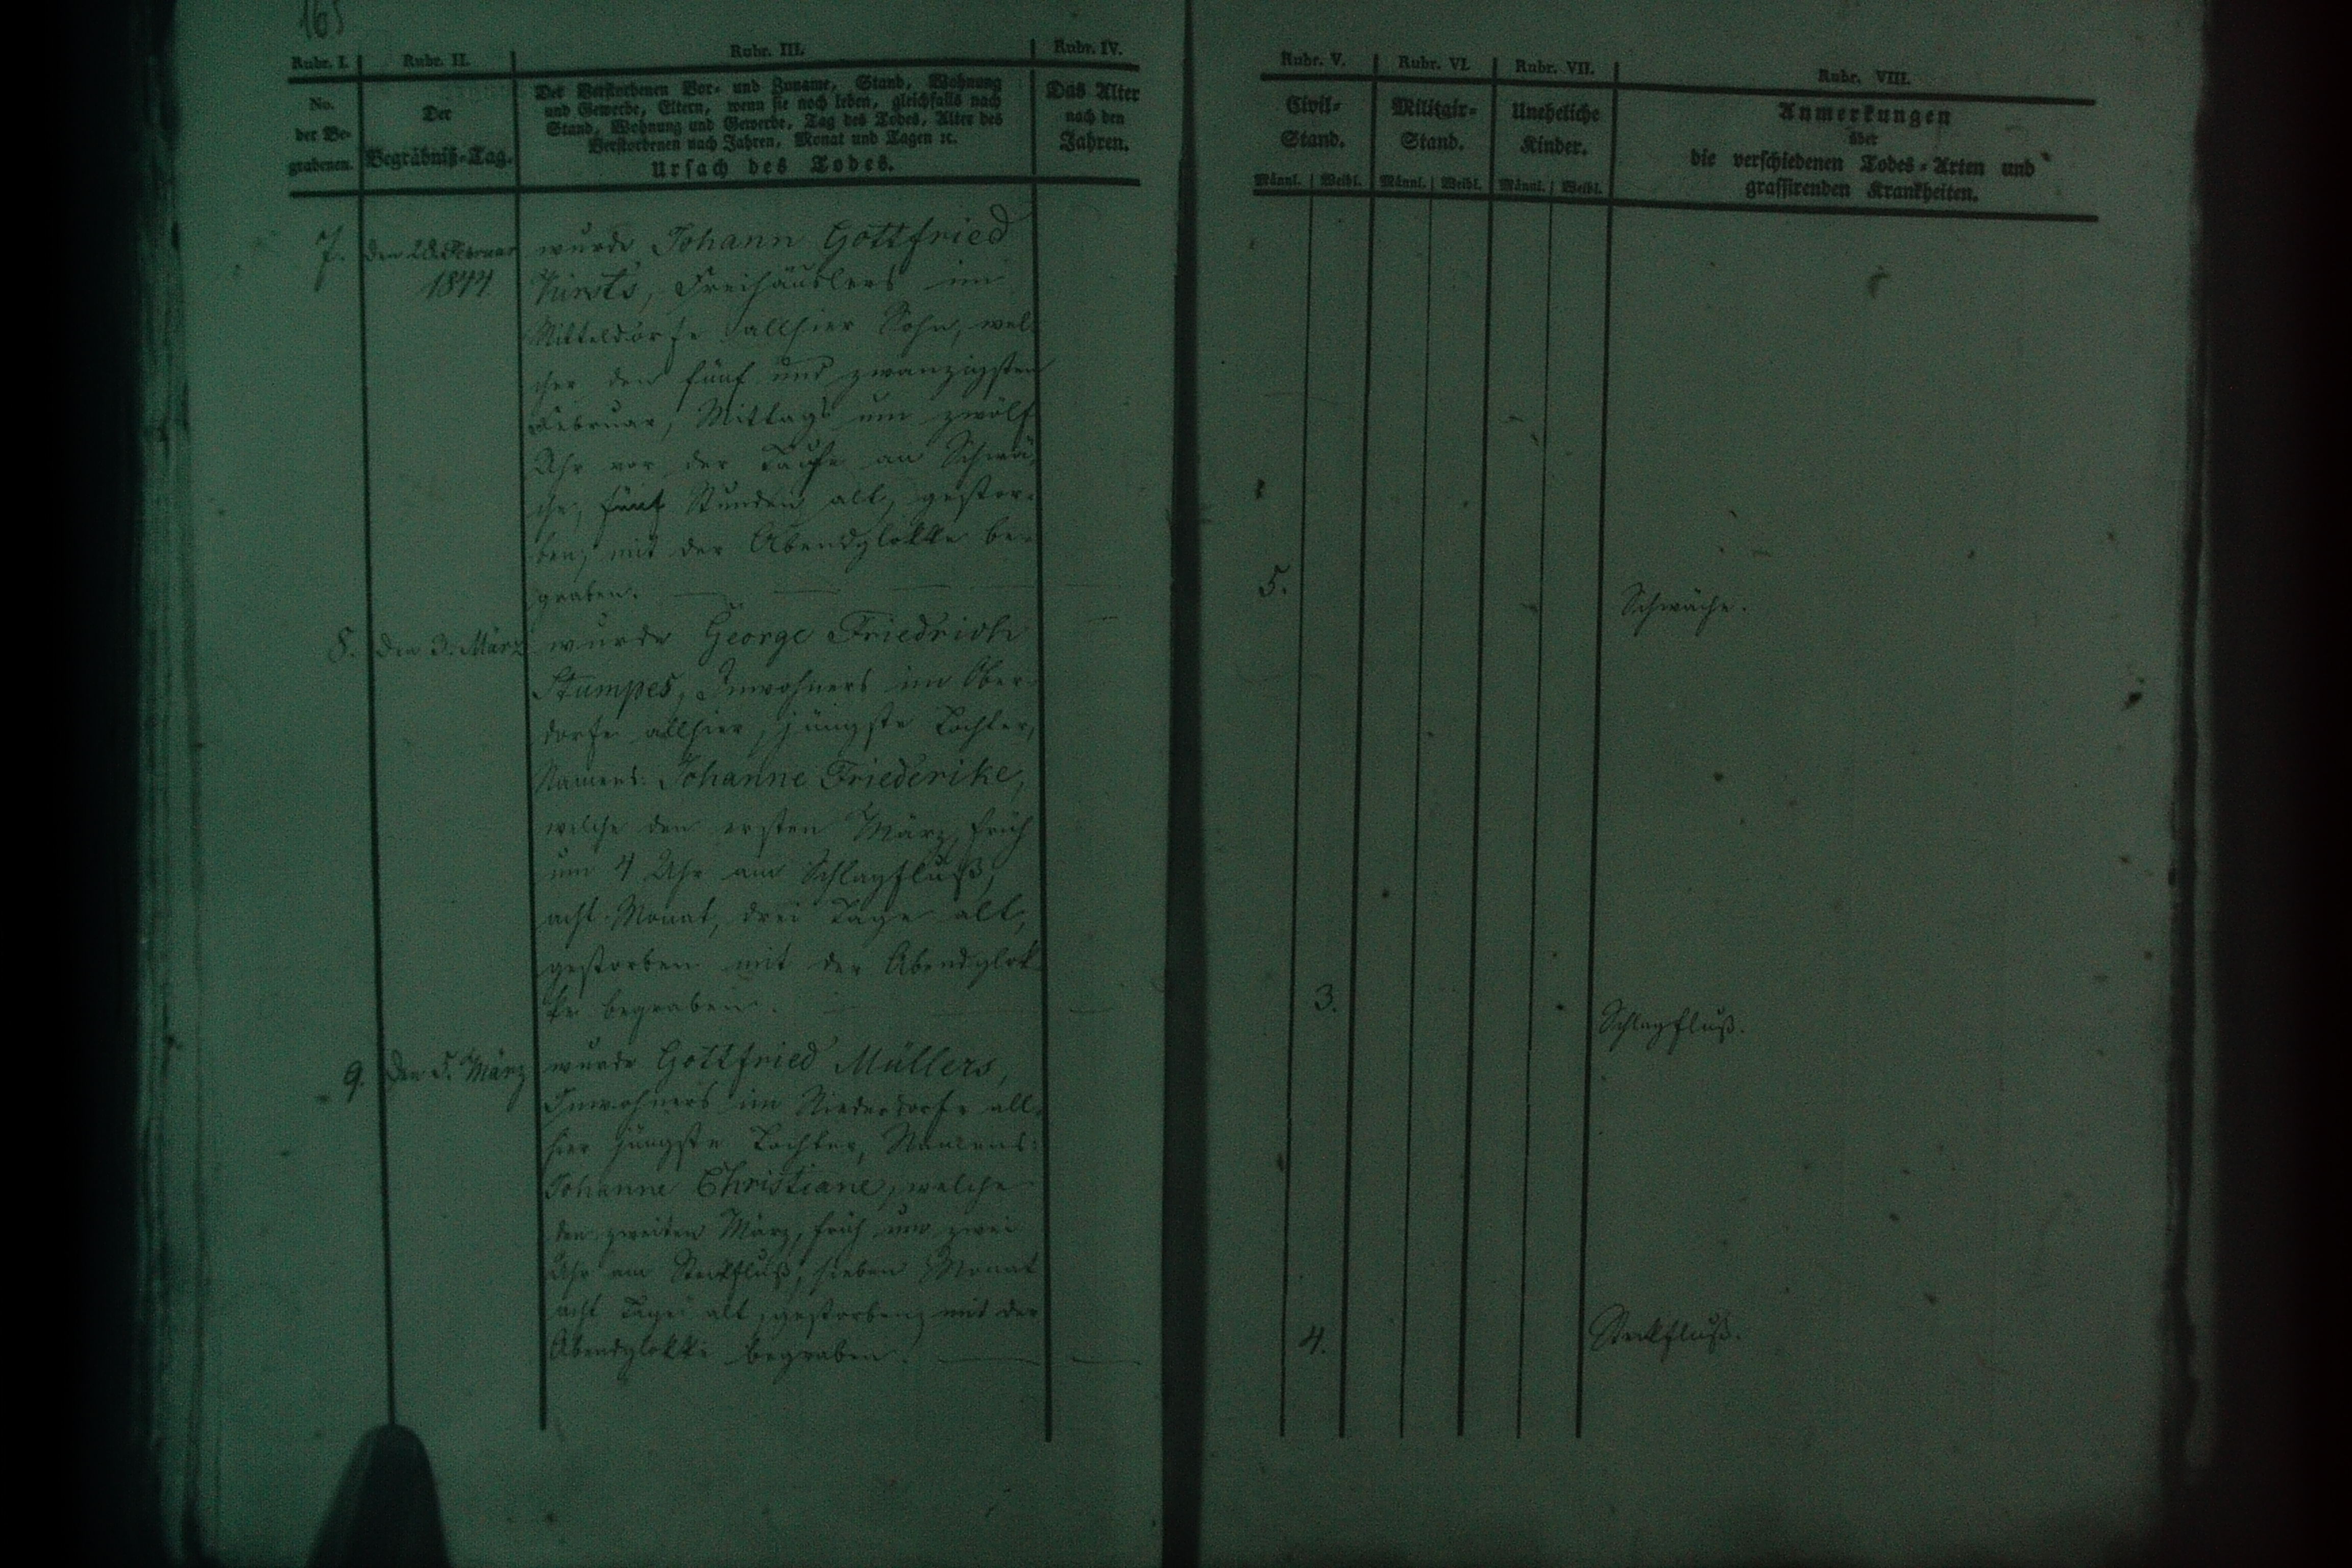 165
Rubr. I. Rubr. II. Rubr. III. Rubr. IV.
No.
der Be-
grabenen.
Der
Begräbniß-Tag.
Der Verstorbenen Vor- und Zuname, Stand, Wohnung
und Gewerbe, Eltern, wenn sie noch leben, gleichfalls nach
Stand, Wohnung und Gewerbe, Tag des Todes, Alter des
Verstorbenen nach Jahren, Monat und Tagen ꝛc.
Ursach des Todes.
Das Alter
nach den
Jahren.
7. den 28. Februar
1844
wurde Johann Gottfried
Freihäuslers im
Mitteldorfe allhier Sohn, wel-
cher den fünf und zwanzigsten
Februar, Mittags um zwölf
Uhr vor der Taufe an Schwä-
che, fünf Stunden alt, gestor-
ben, mit der Abendglokke be-
graben.
8. den 3. März wurde George Friedrich
Stumpes, Inwohners im Ober-
dorfe allhier, jüngste Tochter,
Namens: Johanne Friederike,
welche den ersten März früh
um 4 Uhr am Schlagfluß,
acht Monat, drei Tage alt,
gestorben mit der Abendglok-
ke begraben.
9. den 5. März wurde Gottfried Müllers,
Inwohners im Niederdorfe all-
hier jüngste Tochter, Namens:
Johanne Christiane, welche
den zweiten März, früh um zwei
Uhr am Steckfluß, sieben Monat
acht Tage alt, gestorben, mit der
Abendglokke begraben.
Rubr. V. Rubr. VI. Rubr. VII. Rubr. VIII.
Civil-
Stand.
Männl. Weibl.
Militair-
Stand.
Männl. Weibl.
Uneheliche
Kinder.
Männl. Weibl.
Anmerkungen
über
die verschiedenen Todes-Arten und
grassirenden Krankheiten.
5. Schwäche.
3. Schlagfluß.
4. Steckfluß.